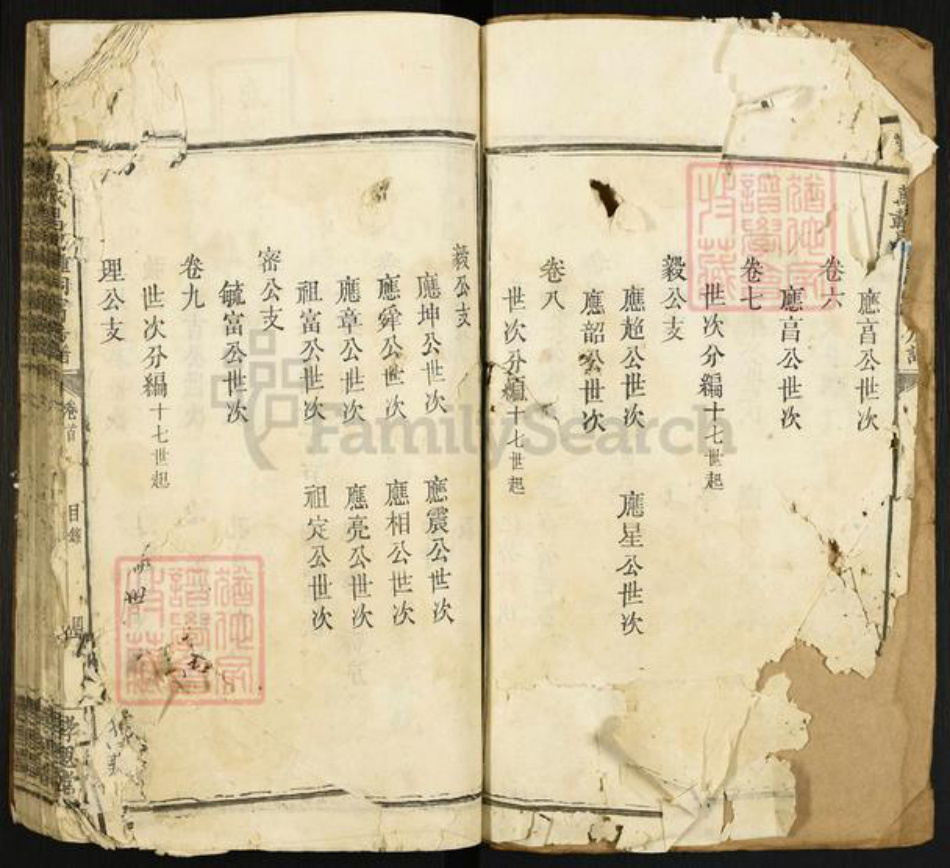 應亯公世次
卷六
應亯公世次
卷七
世次分編十七世起
毅公支
應趒公世次 應星公世次
應韶公世次
卷八
世次分編十七世起
毅公支
應坤公世次 應震公世次
應舜公世次 應相公世次
應章公世次 應亮公世次
祖富公世次 祖定公世次
密公支
毓富公世次
卷九
世次分編十七世起
理公支
卷首
目錄
FamilySearch
譜學會
收藏
譜學會
收藏